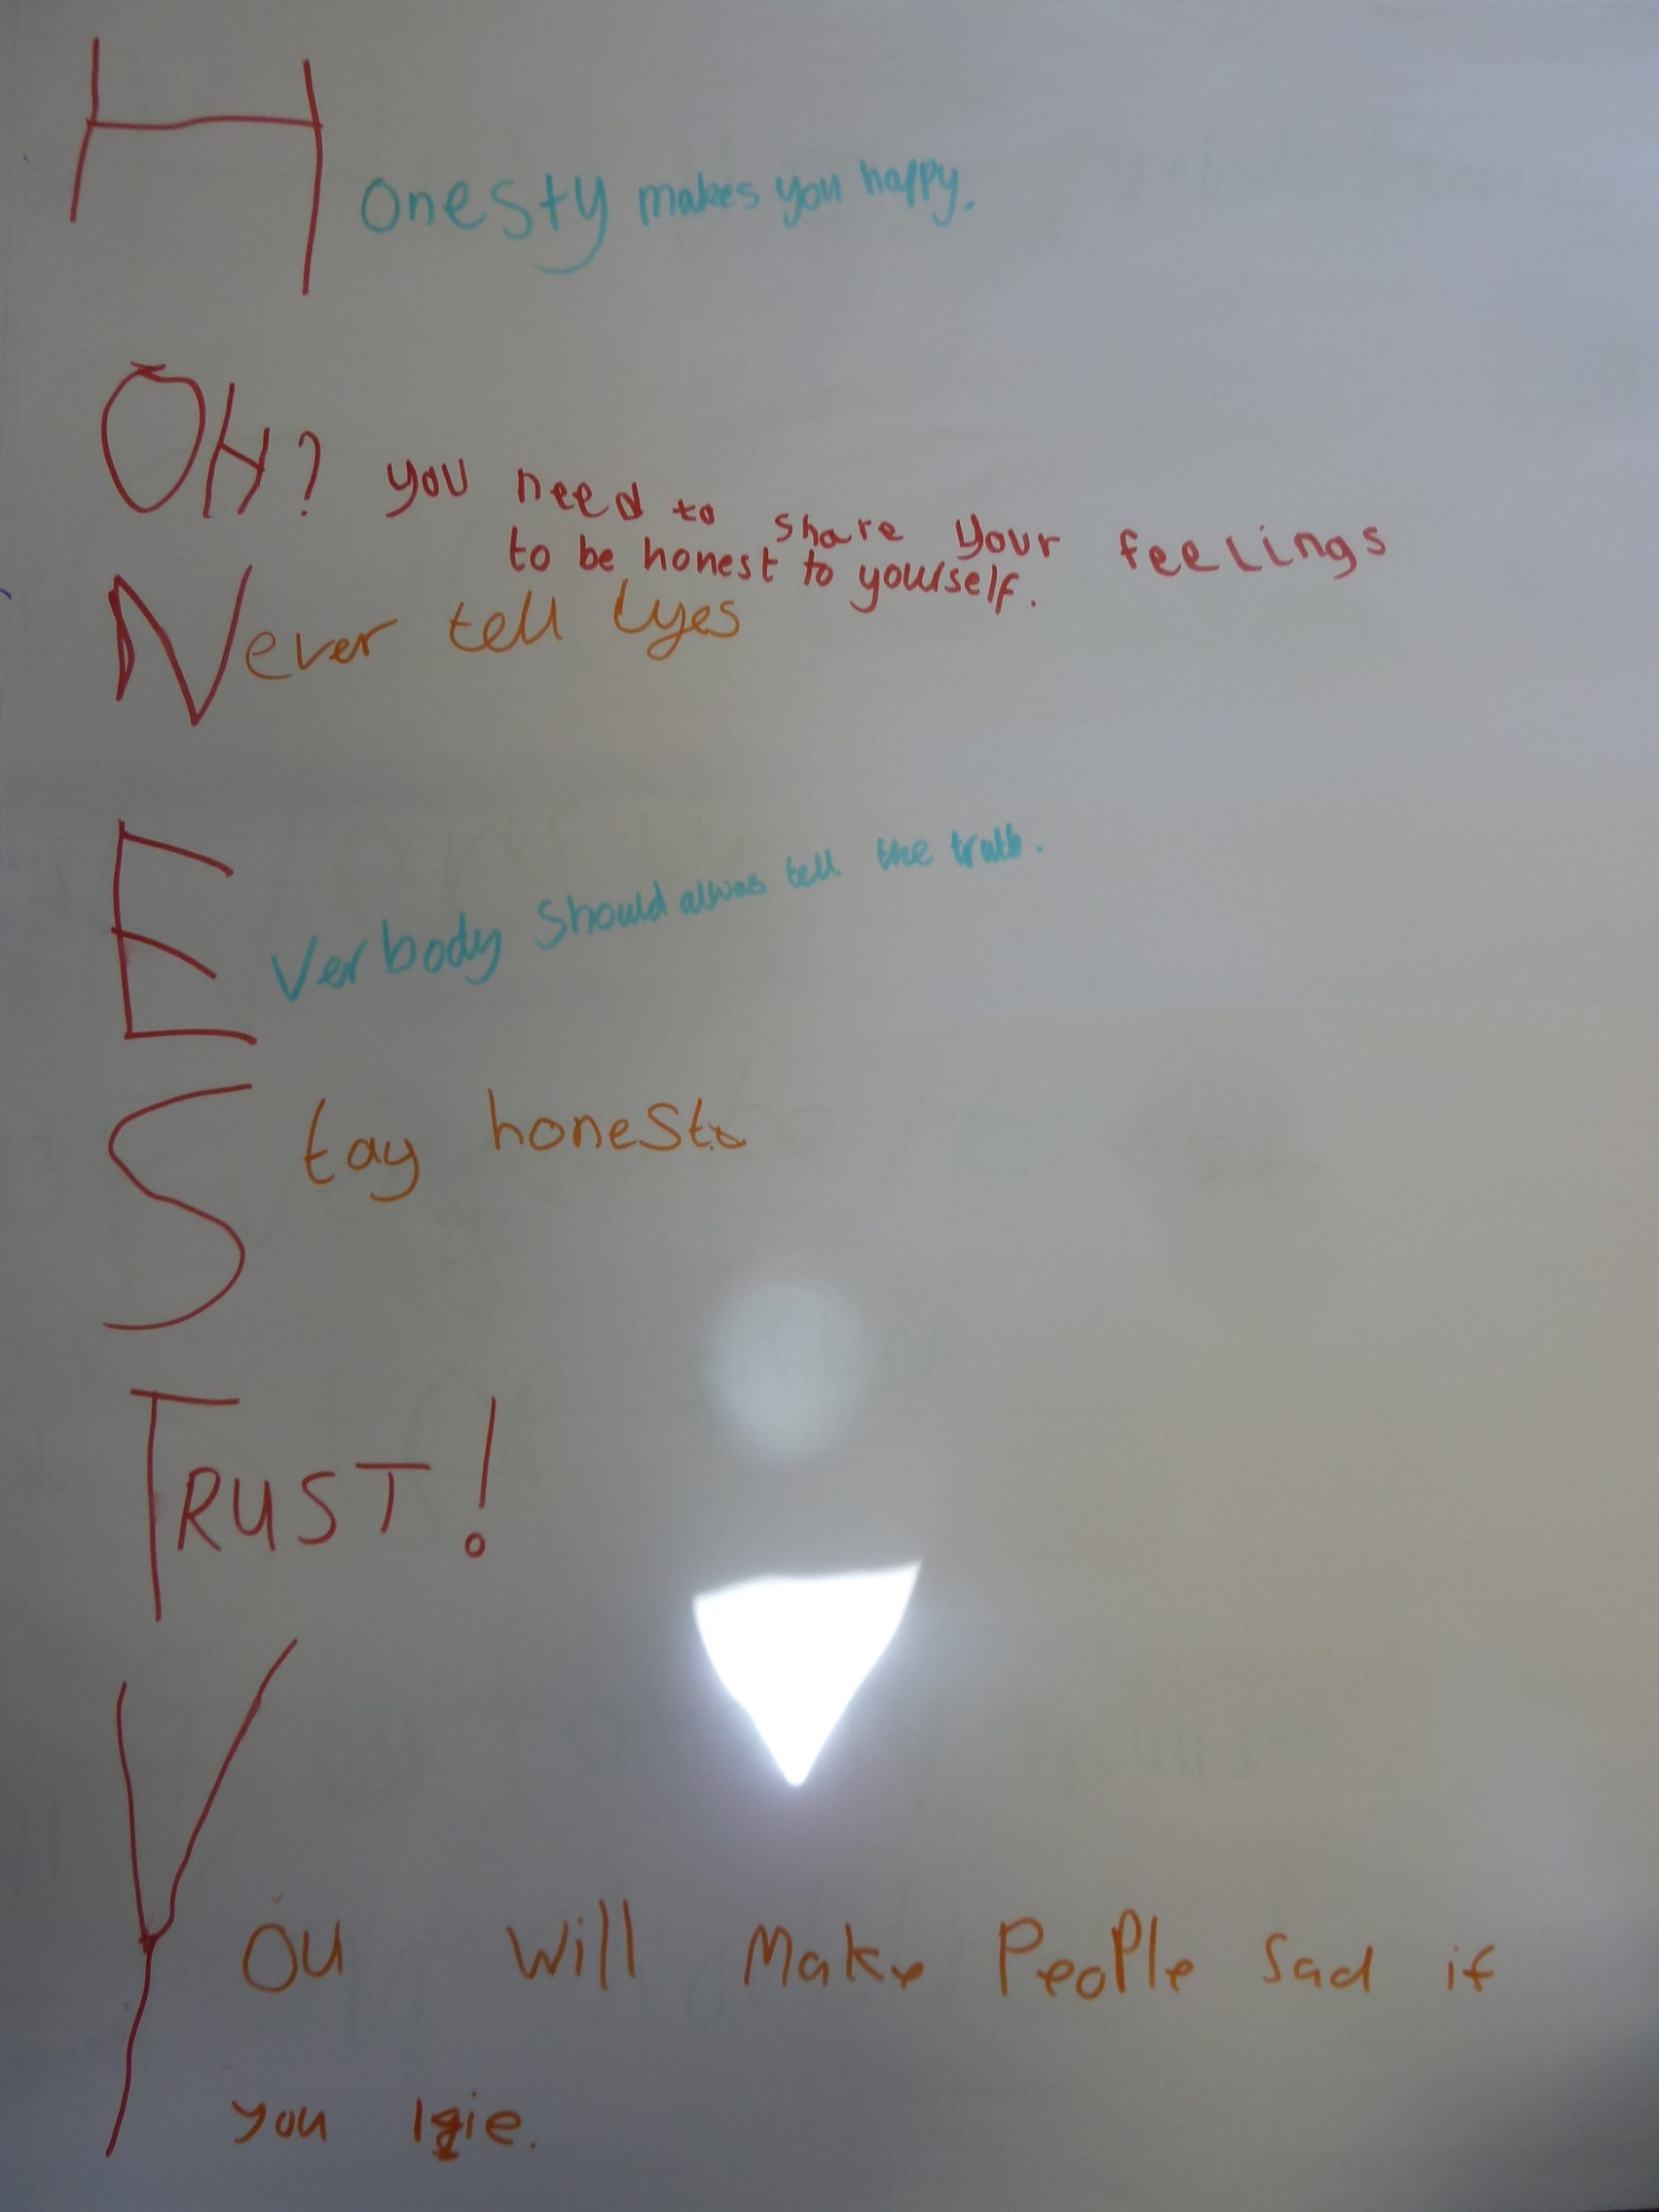 Honesty makes you happy.
OH? you need to share your feelings
to be honest to yourself.
Never tell lyes
Everbody should alwas tell the truth.
Stay honest.
TRUST!
You will make people sad if
you lie.